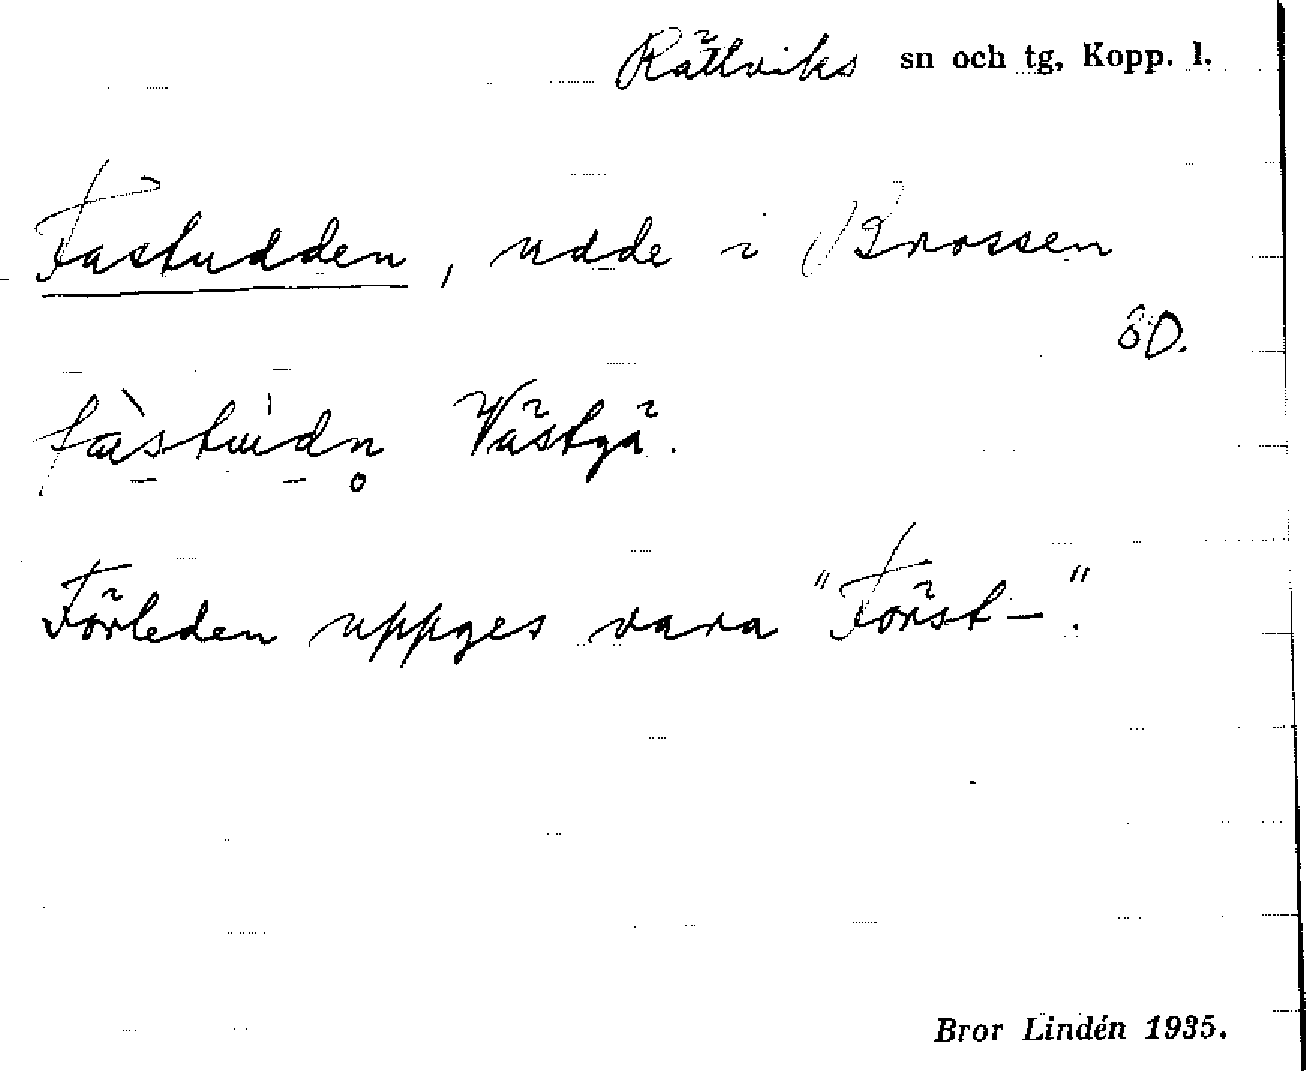 Rättviks sn och tg, Kopp. l.
Fastudden, udde i Brossen
ÖD.
Västgä.
Förleden uppges vara "Först-".
Bror Lindén 1935.